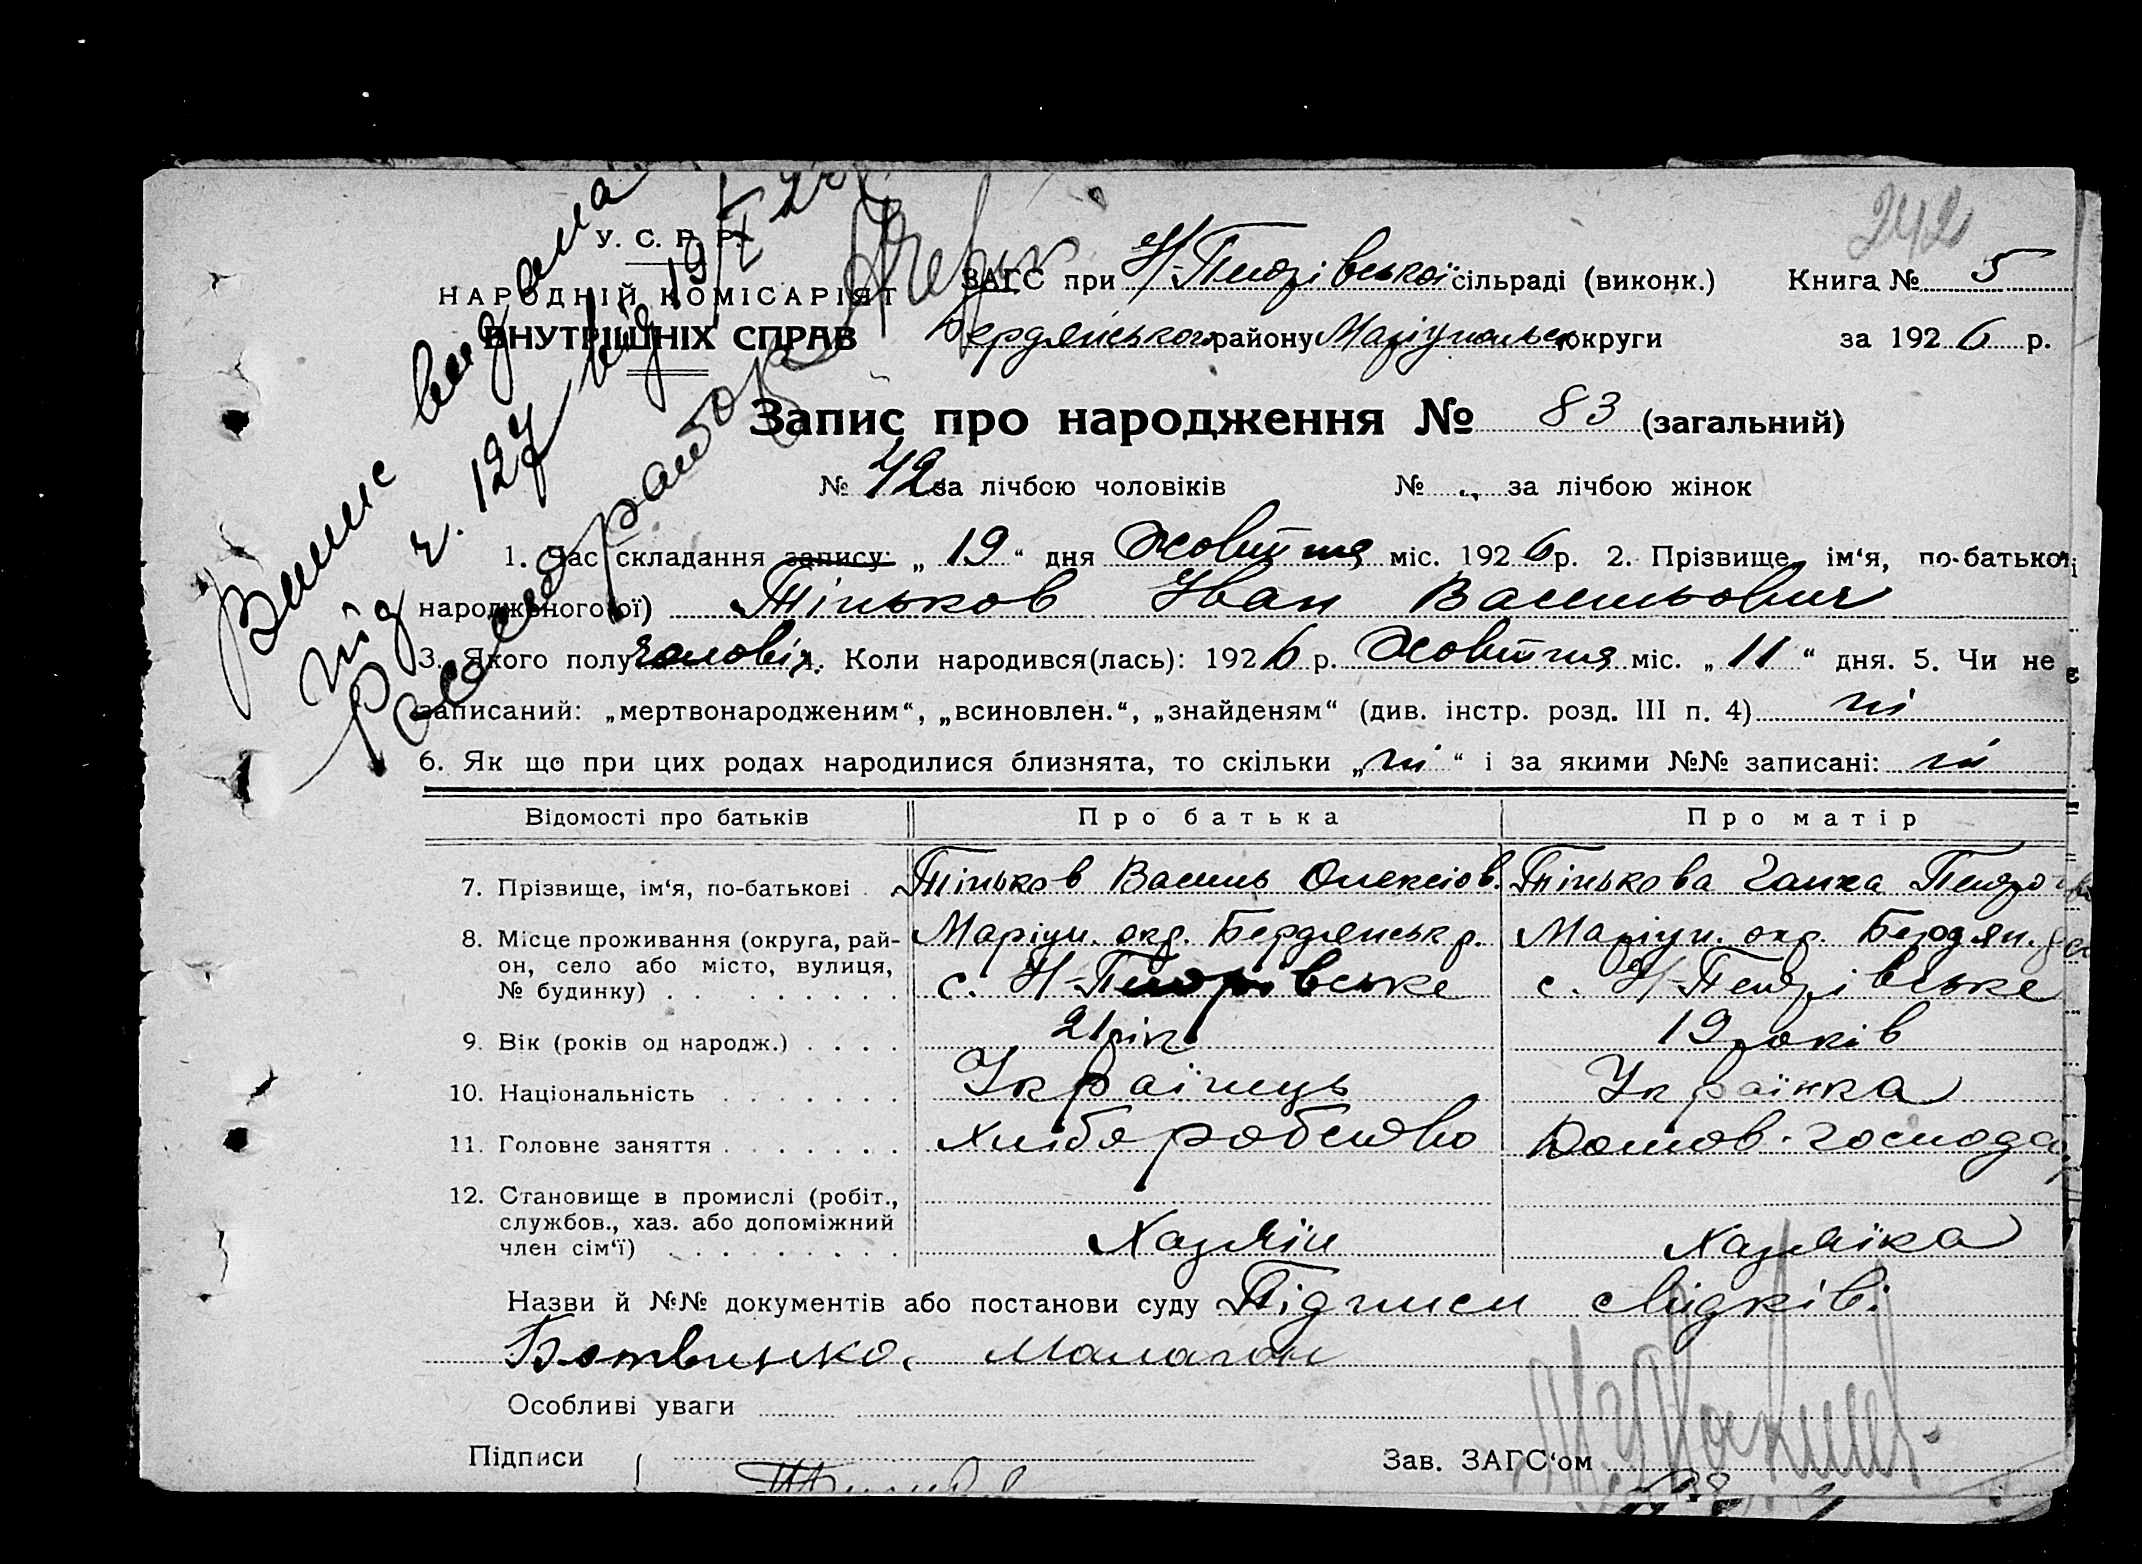 242
У. С. Р. Р.
НАРОДНІЙ КОМІСАРІЯТ
ВНУТРІШНІХ СПРАВ
ЗАГС при Н-Петрівської сільраді (виконк.) Книга № 5
Бердянського району Маріупольськ округи за 1926 р.
Випис видана
під ч. 127 від 19
Запис про народження № 83 (загальний)
№ 42 за лічбою чоловіків № „ за лічбою жінок
1. Час складання запису: „ 19 “ дня Жовтня міс. 1926 р. 2. Прізвище, ім‘я, по-батькові
народженого(ої) Тіньков Іван Васильович
3. Якого полу чоловік. 4. Коли народився(лась): 1926 р. Жовтня міс. „ 11 “ дня. 5. Чи не є
записаний: „мертвонародженим“, „всиновлен.“, „знайденям“ (див. інстр. розд. III п. 4) ні
6. Як що при цих родах народилися близнята, то скільки „ ні “ і за якими №№ записані: ні
Відомості про батьків Про батька Про матір
7. Прізвище, ім‘я, по-батькові Тіньков Василь Олексіов. Тінькова Ганна Петровна
8. Місце проживання (округа, рай- Маріуп. окр. Бердянськ р. Маріуп. окр. Бердян.
он, село або місто, вулиця,
№ будинку) с. Н-Петрівське с. Н-Петрівське
9. Вік (років од народж.) 21 рік 19 років
10. Національність Українець Українка
11. Головне заняття Хліборобство Домов. господар
12. Становище в промислі (робіт.,
службов., хаз. або допоміжний
член сім‘ї) Хазяїн Хазяїка
Назви й №№ документів або постанови суду Підписи свідків:
Ботвинко, Малагон
Особливі уваги
Підписи Зав. ЗАГС‘ом